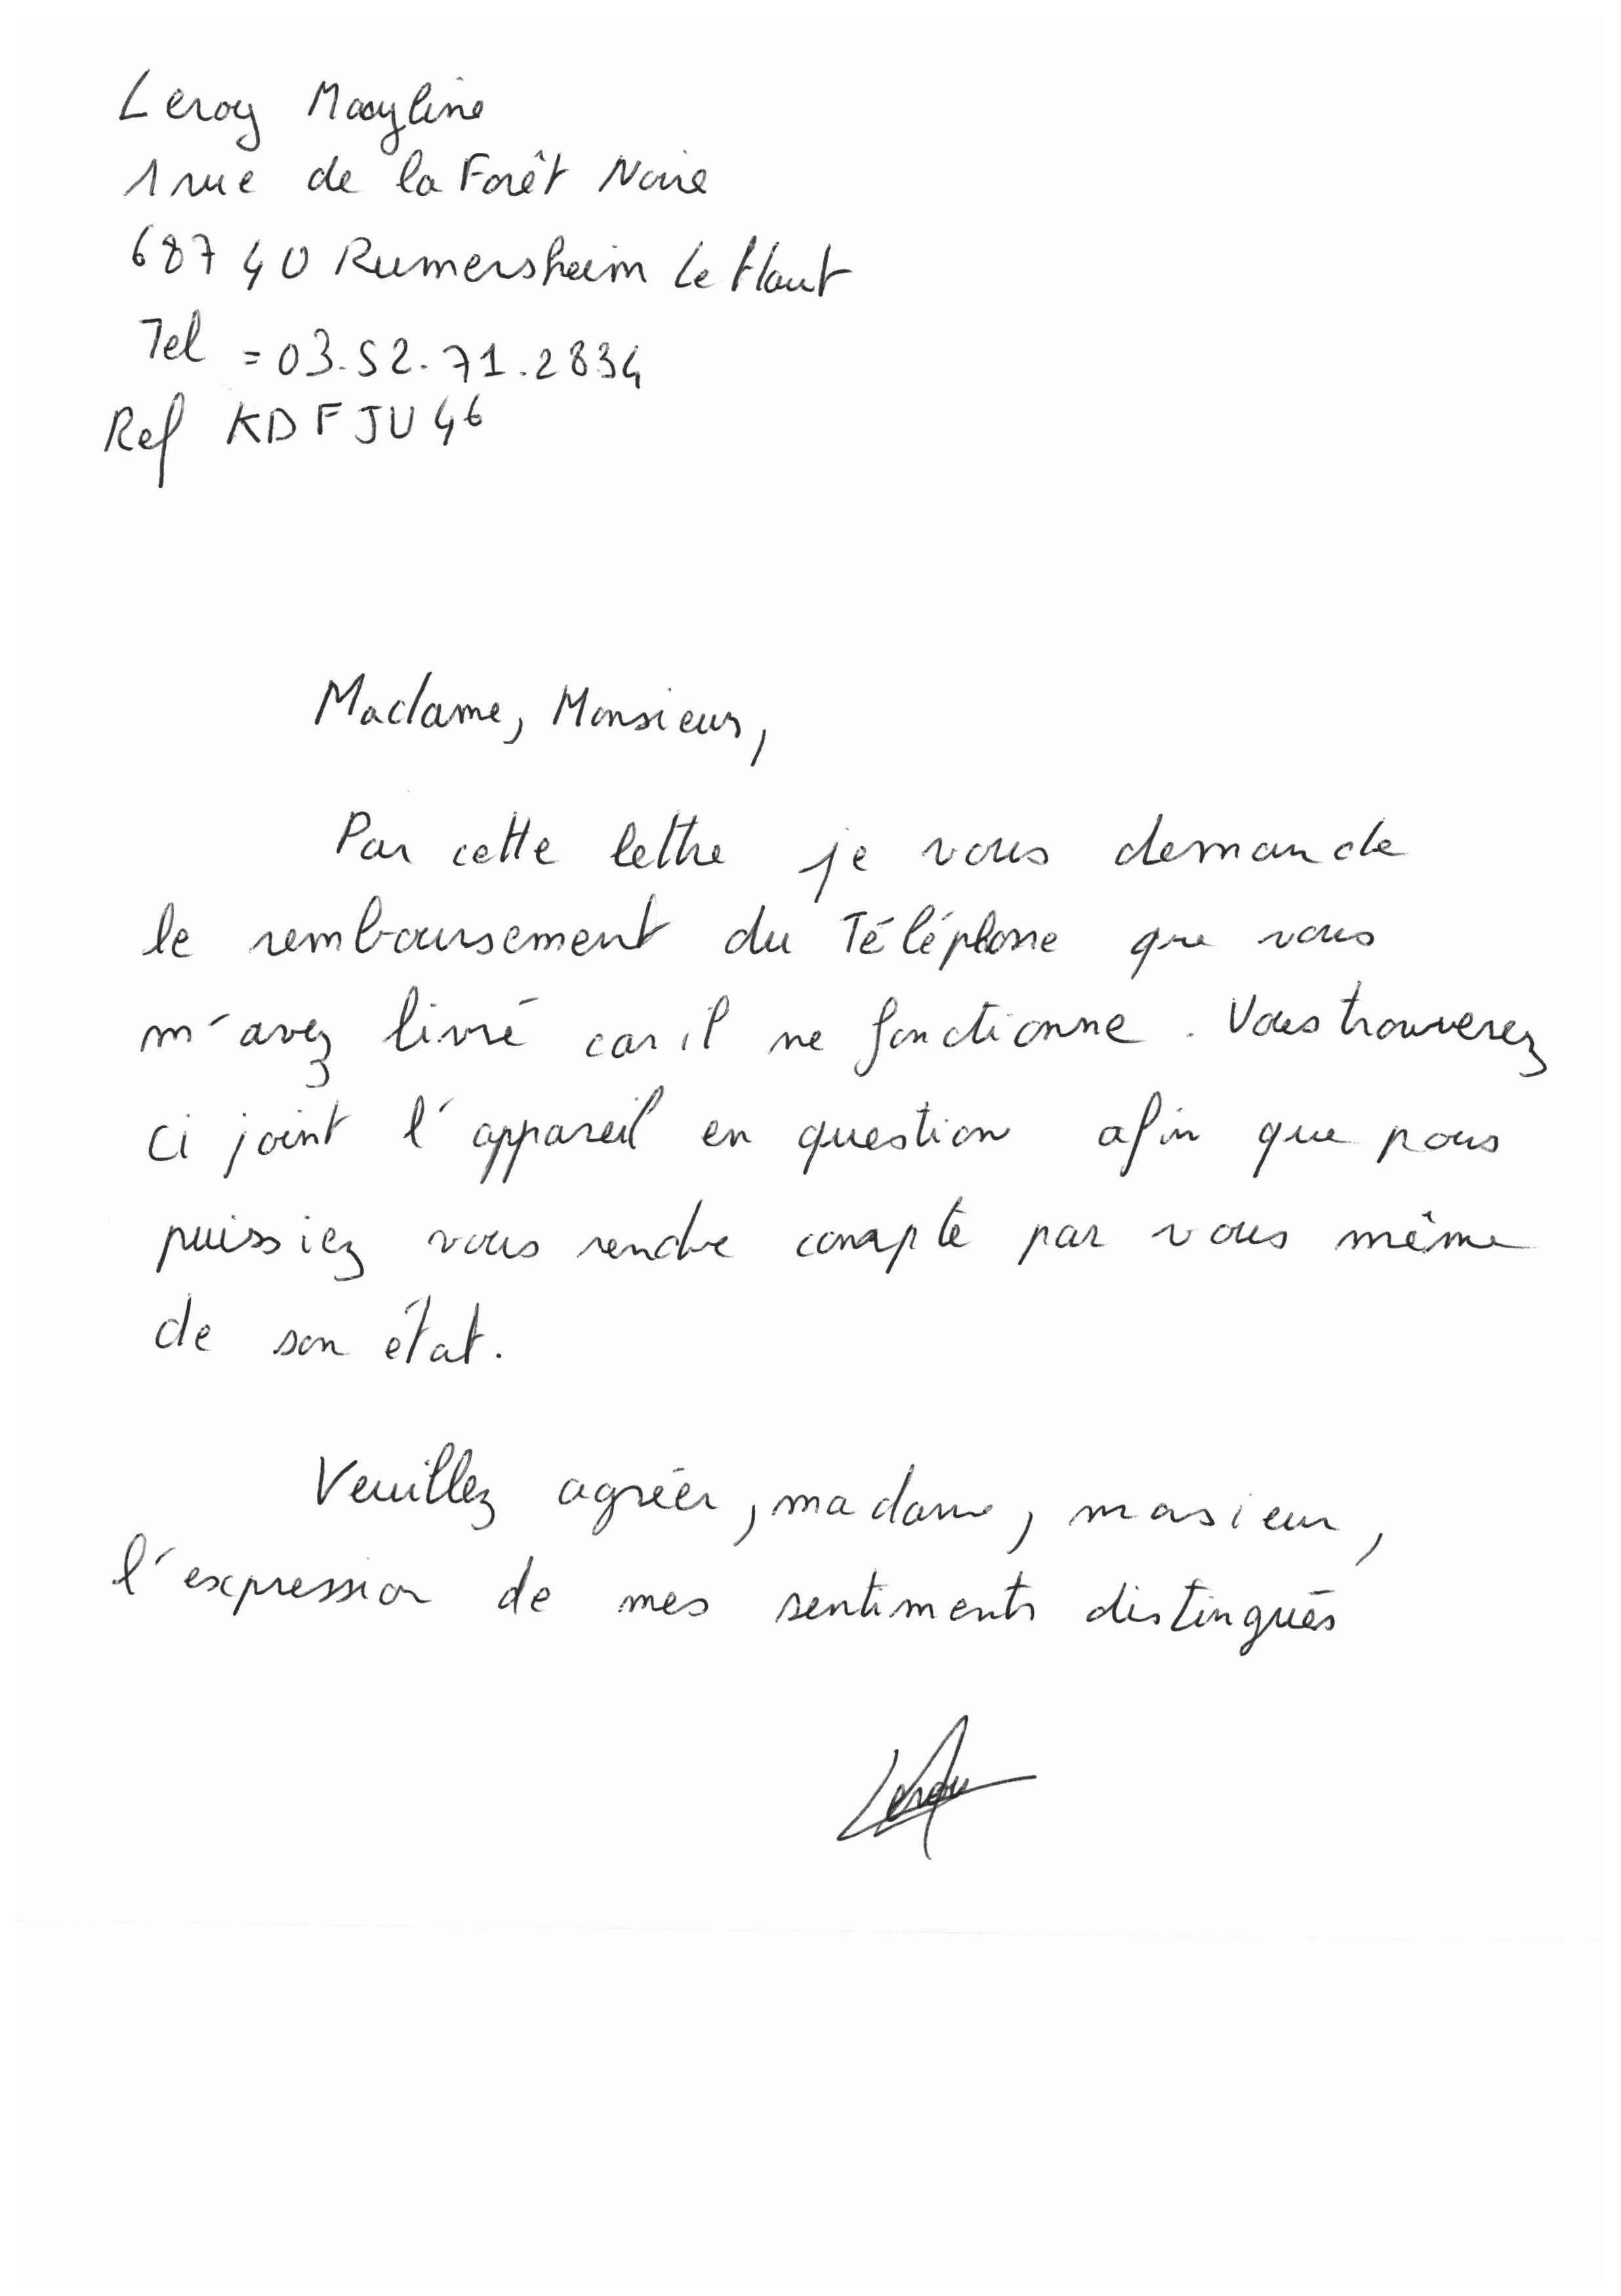 Leroy Maryline
1 rue de la Forêt Noire
68740 Rumersheim Le Haut
Tel = 03.52.71.2834
Ref KDFJU46
Madame, Monsieur,
Par cette lettre je vous demande
le remboursement du Téléphone que vous
m'avez livré car il ne fonctionne. Vous trouverez
ci joint l'appareil en question afin que pous
puissiez vous rendre compte par vous même
de son état.
Veuillez agréer, madame, masieur,
l'expression de mes sentiments distingués
Leroy